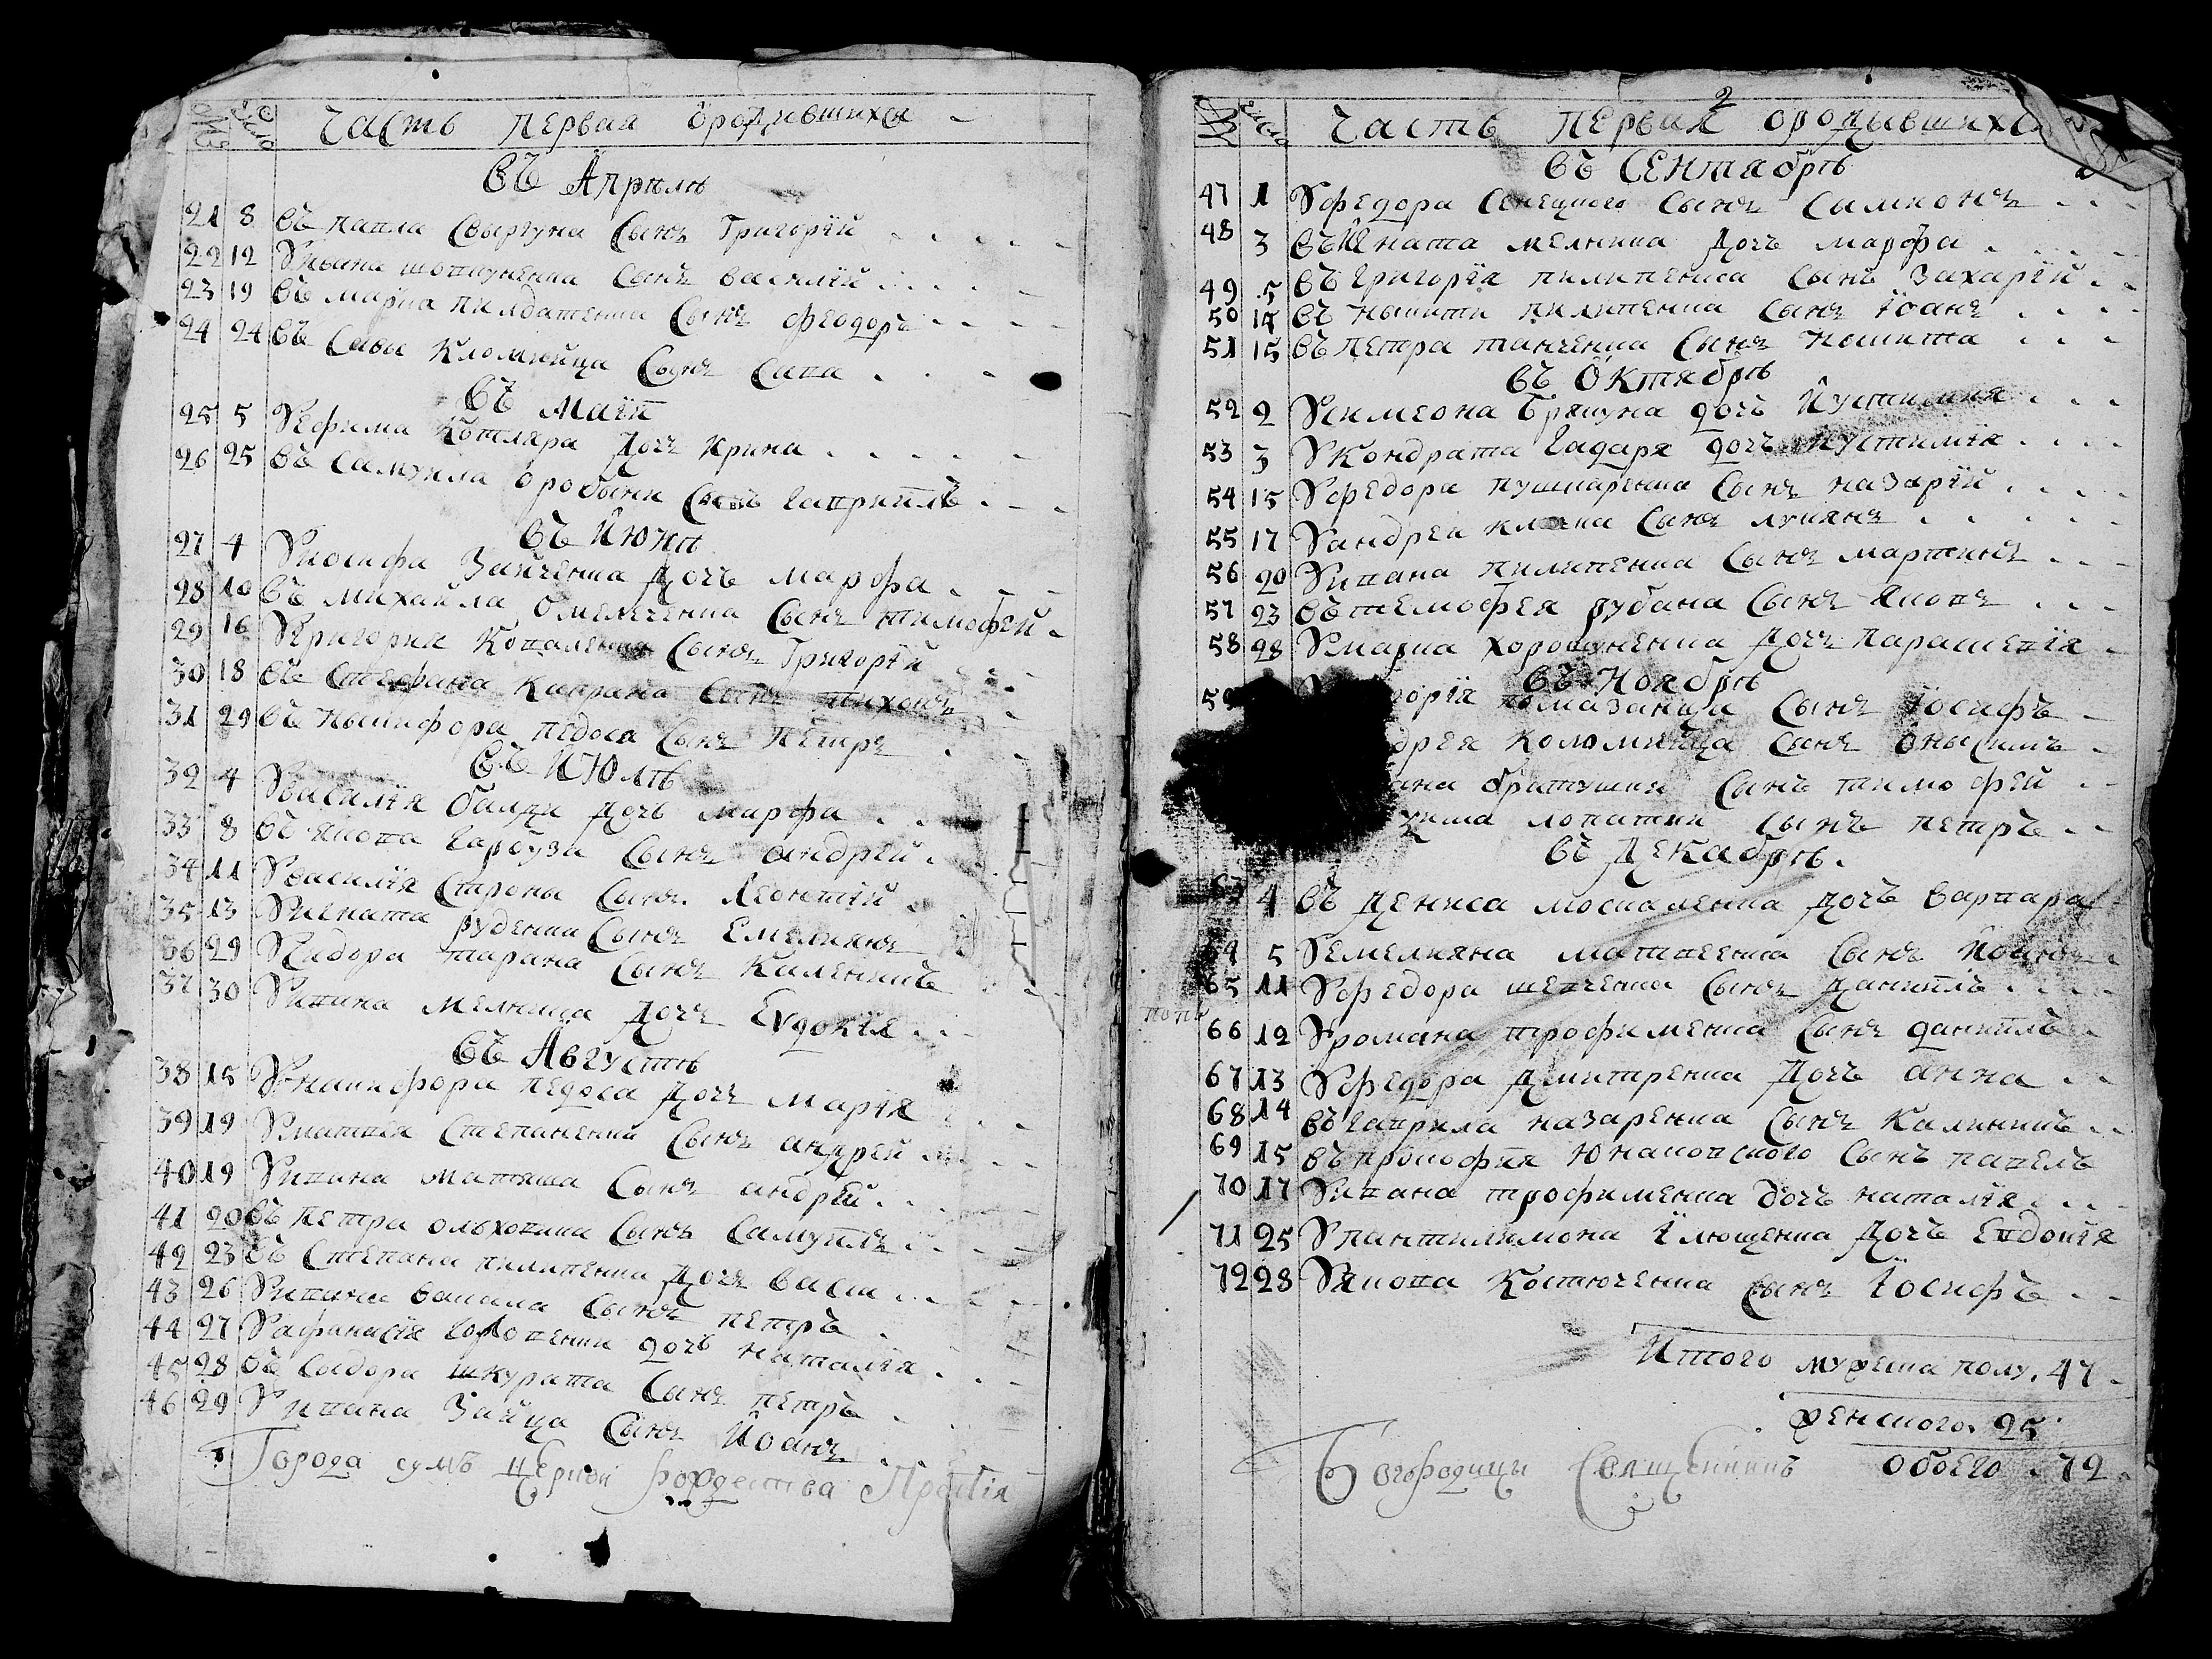 № число Часть первая ородившихся
въ Априлѣ
21 8 въ павла Свыргуна Сынъ Григорїй
22 12 Уивана шовкуненка Сынъ василїй
23 19 въ марка пилватенка Сынъ феодоръ
24 24 въ Савы Кломыйца Сынъ Сава
въ маїи
25 5 Уефима Котляра Дочъ Ирина
26 25 въ самуила оробыня Сынъ гавриилъ
въ Июнѣ
27 4 Уиосифа Зайченка Дочъ марфа
28 10 въ михайла омелченка Сынъ тимофей
29 16 Угригория Коваленка Сынъ Григорїй
30 18 въ Стефана Каврана Сынъ тихонъ
31 29 въ Ныкифора педоса Сынъ Петръ
въ Июлѣ
32 4 Увасилїя балди Дочъ марфа
33 8 въ якова гарбуза Сынъ андрѣй
34 11 Увасилїя Строны Сынъ Леонтїй
35 13 Уигната руденка Сынъ Емелиянъ
36 29 Усидора тарана Сынъ Каленикъ
37 30 Уивана мелника Дочъ Еvдокїя
въ Августѣ
38 15 Уникифора педоса Дочъ марїя
39 19 Уматвѣя Степаненка Сынъ андрей
40 19 Уивана матяша Сынъ андрѣй
41 20 въ петра олховика Сынъ Самуилъ
42 23 въ Степана пилипенка Дочъ васса
43 26 Уивана вакала Сынъ петръ
44 27 Уафанасїя головенки дочъ наталїя
45 28 въ сыдора шкурата Сынъ петръ
46 29 Уивана Зайца Сынъ Иоанъ
Города сумъ церкви рождества Пресвтїя
2
№ число Часть первая ородывшихся
въ Сентябрѣ
47 1 Уфедора Сенецкого Сынъ Симионъ
48 3 въИгната мелника Дочъ марфа
49 5 въ григорїя пилипенка Сынъ Захарїй
50 14 въ ныкити пилипенка Сынъ Іоанъ
51 15 въ петра танченка Сынъ Ныкита
въ Октябрѣ
52 2 Усимеона брягуна дочъ Иустимия
53 3 УКондрата Гадаря дочъ Иустимїя
54 15 Уфедора пушкаренка Сынъ назарїй
55 17 Уандрея Сынъ лукянъ
56 20 Уивана пилипенка Сынъ мартинъ
57 23 въ темофея рубана Сынъ яковъ
58 28 Умарка хорошуненка Дочъ парасцевїя
въ Ноябрѣ
59 горїя помазанца Сынъ Іосифъ
дрея Коломыйца Сынъ Онысимъ
ана братушки Сынъ тимофей
уима лопатки Сынъ петръ
въ Декабрѣ.
63 4 въ Дениса москаленка Дочъ варвара
64 5 Уемелияна матвеенка Сынъ Иоанъ
65 11 Уфедора шевченка Сынъ Даниилъ
66 12 Уромана трофименка Сынъ даниилъ
67 13 Уфедора Дмитренка Дочъ анна
68 14 въгаврила назаренка Сынъ Калиникъ
69 15 въпрокофїя Юнаковского Сынъ павелъ
70 17 Уивана трофименка дочъ наталїя
71 25 Упантилимона Ілющенка Дочъ Евдокїя
72 28 Уякова Костюченка Сынъ Іосифъ
Итого мужеска полу. 47
женского. 25
обоего 72
Богородицы Священникъ